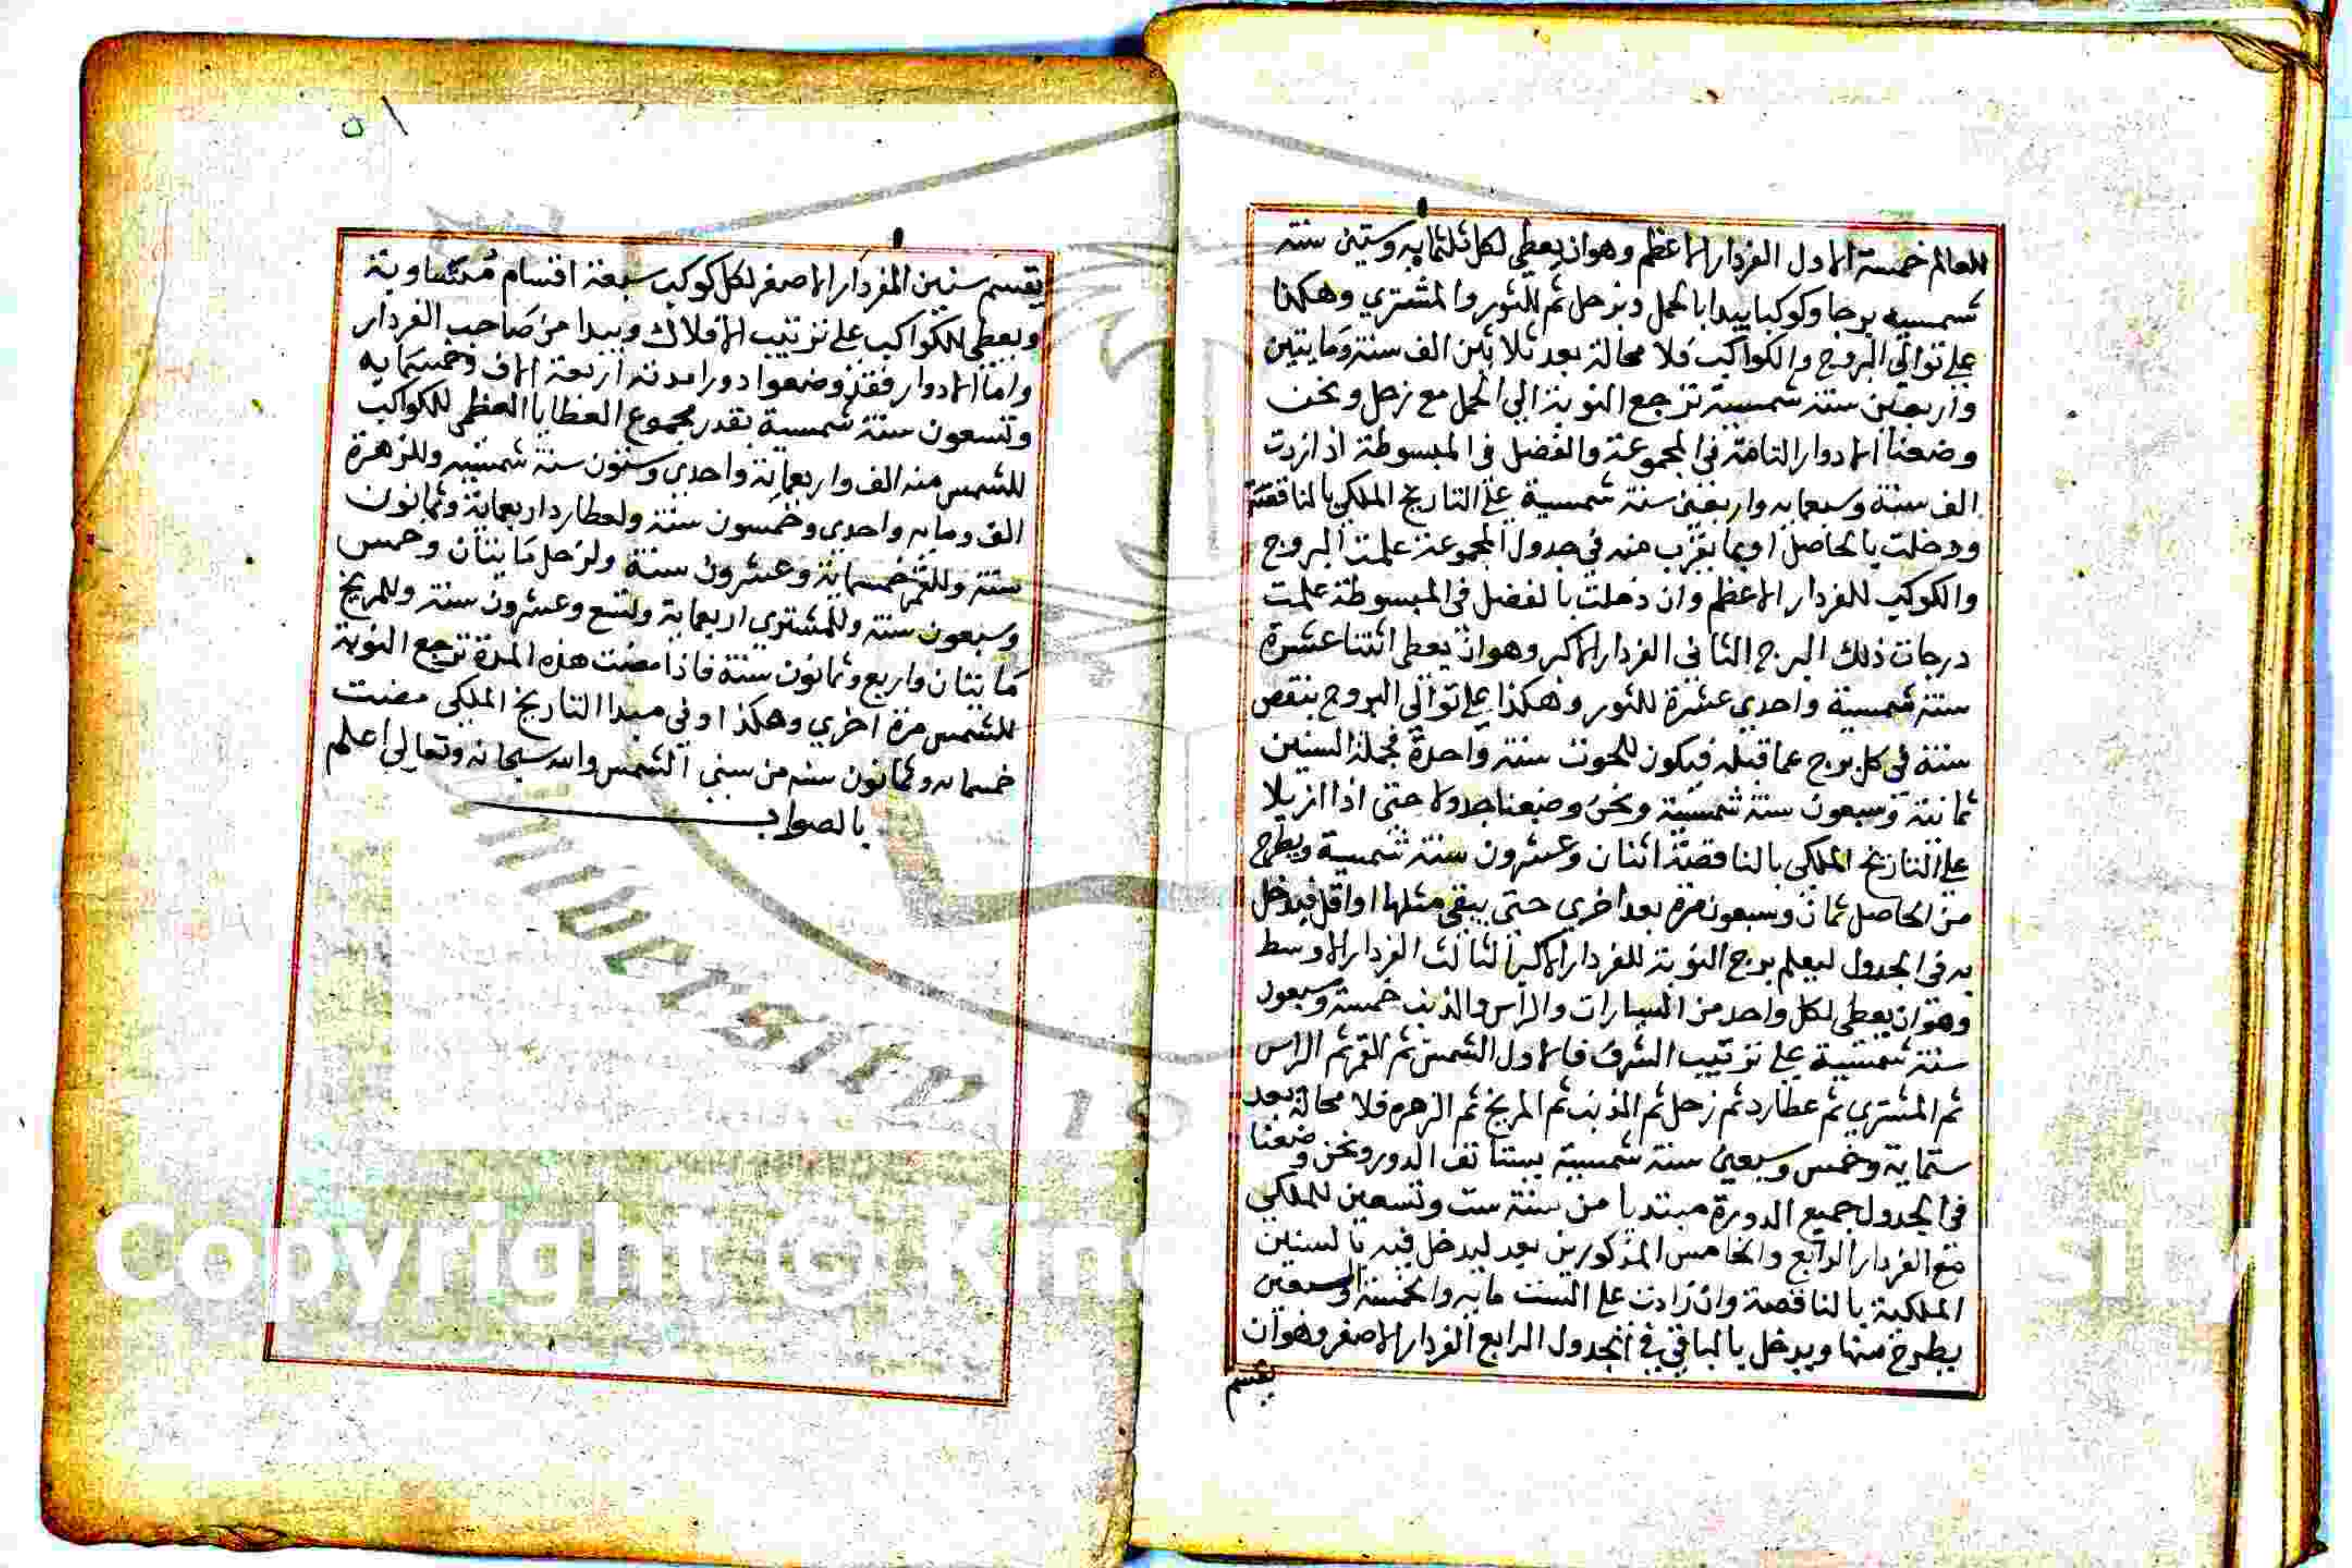 للعالم خمسة الاول الفردار الاعظم وهوان يعطي لكل ثلثمايه وستين سنة
شمسيه برجا وكوكبا يبدا بالحمل وبزحل ثم للثور والمشتري وهكذا
علي توالي البروج والكواكب فلا محالة بعد ثلاثين الف سنة ومايتين
واربعين سنة شمسية ترجع النوبة الي الحمل مع زحل ونحن
وضعنا الادوار التامة في المجموعة والفضل في المبسوطة اذا زدت
الف سنة وسبعمايه واربعين سنة شمسية علي التاريخ الملكي بالناقصة
ودخلت بالحاصل اوبما يقرب منه في جدول المجموعة علمت البروج
والكوكب للفردار الاعظم وان دخلت بالفضل في المبسوطة علمت
درجات ذلك البرج الثاني الفردار الاكبر وهوان يعطي اثنتا عشرة
سنة شمسية واحدي عشرة للثور وهكذا علي توالي البروج بنقص
سنة في كل برج عما قبله فيكون للحوت سنة واحدة فجملة السنين
ثمانية وسبعون سنة شمسية ونحن وضعنا جدولا حتي اذا ازيلا
علي التاريخ الملكي بالناقصة اثنان وعشرون سنة شمسية ويطرح
من الحاصل ثمان وسبعون مرة بعد اخري حتي يبقي مثلها او اقل فيدخل
به في الجدول ليعلم برج النوبة للفردار الاكبر الثالث الفردار الاوسط
وهوان يعطي لكل واحد من السيارات والراس والذنب خمسة وسبعون
سنة شمسية علي ترتيب الشرف فالاول الشمس ثم القمر ثم الراس
ثم المشتري ثم عطارد ثم زحل ثم الذنب ثم المريخ ثم الزهره فلا محالة بعد
ستماية وخمس وسبعين سنة شمسية يستانف الدور ونحن وضعنا
في الجدول جميع الدورة مبتديا من سنة ست وتسعين للملكي
مع الفردار الرابع والخامس المذكورين بعد ليدخل فيه بالسنين
الملكية بالناقصة وان زادت علي الست مايه والخمسة والسبعين
يطرح منها ويدخل بالباقي في الجدول الرابع الفردار الاصغر وهوان
يقسم
٥١
يقسم سنين الفردار الاصغر لكل كوكب سبعة اقسام متساوية
ويعطي للكواكب علي ترتيب الافلاك ويبدا من صاحب الفردار
واما الادوار فقد وضعوا دورا مدته اربعة الاف وخمسمايه
وتسعون سنة شمسية بقدر مجموع العطايا العظمي للكواكب
للشمس منه الف واربعماية واحدي وستون سنة شمسيه وللزهرة
الف ومايه واحدي وخمسون سنة ولعطارد اربعماية وثمانون
سنة وللقمر خمسماية وعشرون سنة ولزحل مايتان وخمس
وسبعون سنة وللمشتري اربعماية وتسع وعشرون سنة وللمريخ
مايتان واربع وثمانون سنة فاذا مضت هذه المدة ترجع النوبة
للشمس مرة اخري وهكذا وفي مبدا التاريخ الملكي مضت
خمسمايه وثمانون سنه من سني الشمس والله سبحانه وتعالي اعلم
بالصواب
Copyright © Kin